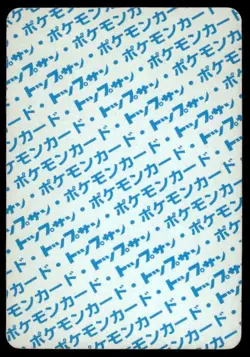 ポケモンカード
トップサン・ポケモンカード
ポケモンカード・トップサン
トップサン・ポケモンカード・
ポケモンカード・トップサン・
トップサン・ポケモンカード・
ポケモンカード・トップサン・
トップサン・ポケモンカード・
ポケモンカード・トップサン・
トップサン・ポケモンカード・
ポケモンカード・トップサン・
トップサン・ポケモンカード・
ポケモンカード・トップサン
ポケモンカード